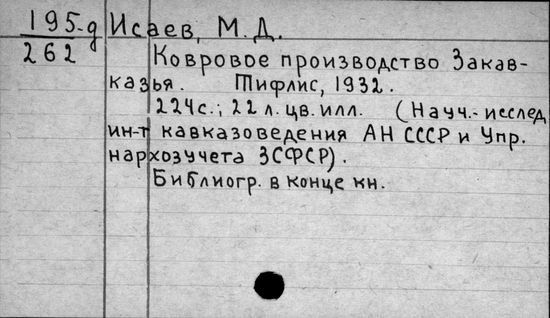 195-д Исаев, М.Д.
262
Ковровое производство Закав-
казья. Тифлис, 1932.
224с.; 22 л. цв. илл. (Науч.-исслед
ин-т кавказоведения АН СССР и Упр.
нархозучета ЗСФСР).
Библиогр. в конце кн.